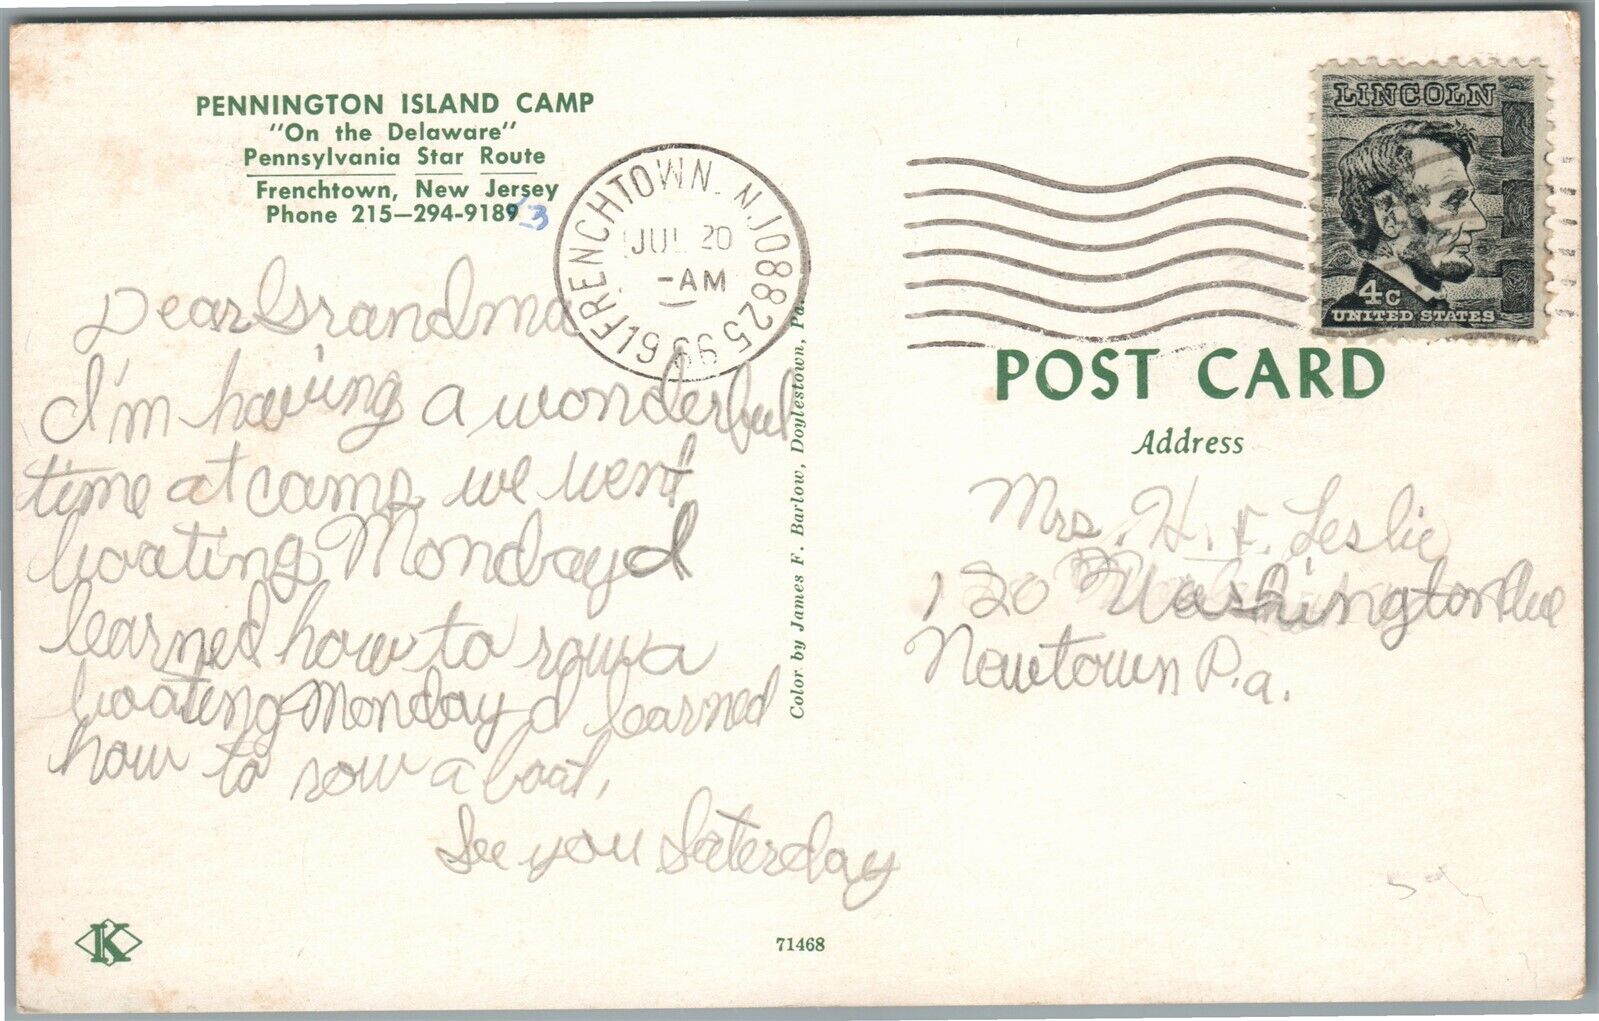 PENNINGTON ISLAND CAMP
"On the Delaware"
Pennsylvania Star Route
Frenchtown, New Jersey
Phone 215—294-9189
3
FRENCHTOWN. N.J. 08825
JUL 20
-AM
1966
LINCOLN
4c
UNITED STATES
POST CARD
Address
Dear Grandma
I'm having a wonderful
time at camp we went
boating Monday d
learned how to row a
boating Monday d learned
how to row a boat.
See you Saterday
Color by James F. Barlow, Doylestown, Pa.
Mrs. H. Leslie
120 Washington Ave
Newtown P.a.
K
71468